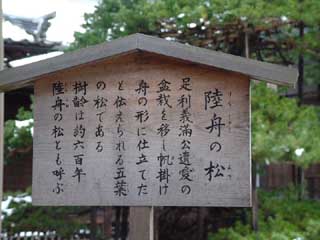 陸舟の松
足利義満公遺愛の
盆栽を移し帆掛け
舟の形に仕立てた
と伝えられる五葉
の松である
樹齢は約六百年
陸舟の松とも呼ぶ